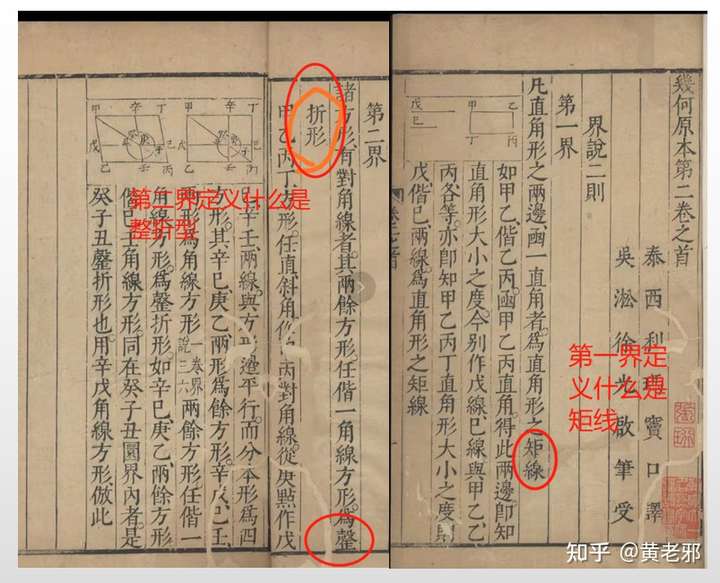 幾何原本第二卷之首
泰西利瑪竇口譯
吳淞徐光啟筆受
界說二則
第一界
凡直角形之兩邊函一直角者為直角形之矩線
如甲乙偕乙丙函甲乙丙直角得此兩邊即知
直角形大小之度今別作戊線己線與甲乙乙
丙各等亦即知甲乙丙丁直角形大小之度則
戊偕己兩線為直角形之矩線
甲
乙
丙
丁
戊
己
第一界定
义什么是
矩线
第二界
諸方形有對角線者其兩餘方形任偕一角線方形為罄
折形
甲乙丙丁方形任直斜角作甲丙對角線從庚點作戊
己辛壬兩線與方形邊平行而分本形為四
方形其辛己庚乙兩形為餘方形辛戊己壬
兩形為角線方形一卷界說三六兩餘方形任偕一
角線方形為罄折形如辛己庚乙兩餘方形
偕己壬角線方形同在癸子丑圜界內者是
癸子丑罄折形也用辛戊角線方形倣此
甲
辛
丁
己
戊
甲
辛
丁
己
戊
第二界定义什么是
整折型
知乎 @黄老邪